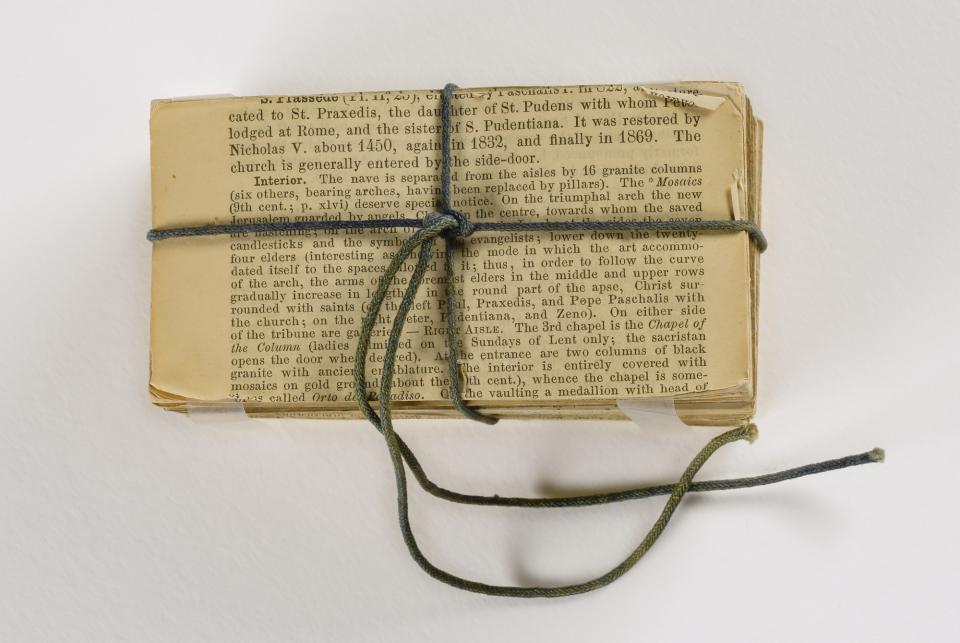 S. Prassede (Pl. II, 25), erected by Paschalis I. in 822, and
cated to St. Praxedis, the daughter of St. Pudens with whom Peter
lodged at Rome, and the sister of S. Pudentiana. It was restored by
Nicholas V. about 1450, again in 1832, and finally in 1869. The
church is generally entered by the side-door.
Interior. The nave is separated from the aisles by 16 granite columns
(six others, bearing arches, having been replaced by pillars). The *Mosaics
(9th cent.; p. xlvi) deserve special notice. On the triumphal arch the new
Jerusalem guarded by angels, in the centre, towards whom the saved
are hastening; on the arch of the seven
candlesticks and the symbols evangelists; lower down the twenty-
four elders (interesting as showing the mode in which the art accommo-
dated itself to the spaces allotted to it; thus, in order to follow the curve
of the arch, the arms of the foremost elders in the middle and upper rows
gradually increase in length); in the round part of the apse, Christ sur-
rounded with saints (on the left Paul, Praxedis, and Pope Paschalis with
the church; on the right Peter, Pudentiana, and Zeno). On either side
of the tribune are galleries. — RIGHT AISLE. The 3rd chapel is the Chapel of
the Column (ladies admitted on the Sundays of Lent only; the sacristan
opens the door when desired). At the entrance are two columns of black
granite with ancient entablature. The interior is entirely covered with
mosaics on gold ground (about the 9th cent.), whence the chapel is some-
times called Orto del Paradiso. On the vaulting a medallion with head of